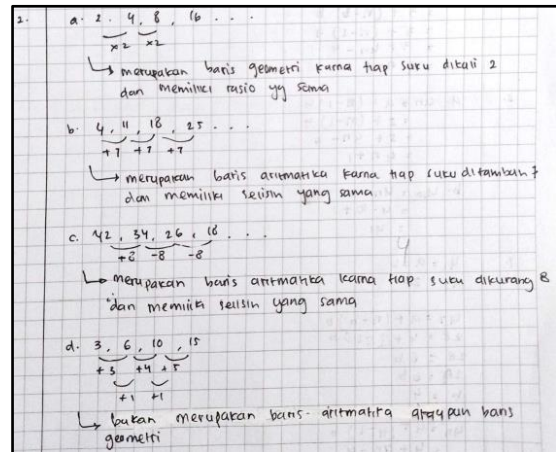 2. a. 2 . 4 , 8 , 16 . . .
x2 x2
↳ merupakan baris geometri karna tiap suku dikali 2
dan memiliki rasio yg sama
b. 4 , 11 , 18 , 25 . . .
+7 +7 +7
↳ merupakan baris aritmatika karna tiap suku ditambah 7
dan memiliki selisih yang sama
c. 42 , 34 , 26 , 18 . . .
+8 -8 -8
↳ merupakan baris aritmatika karna tiap suku dikurang 8
dan memiliki selisih yang sama
d. 3 , 6 , 10 , 15
+3 +4 +5
+1 +1
↳ bukan merupakan baris aritmatika ataupun baris
geometri